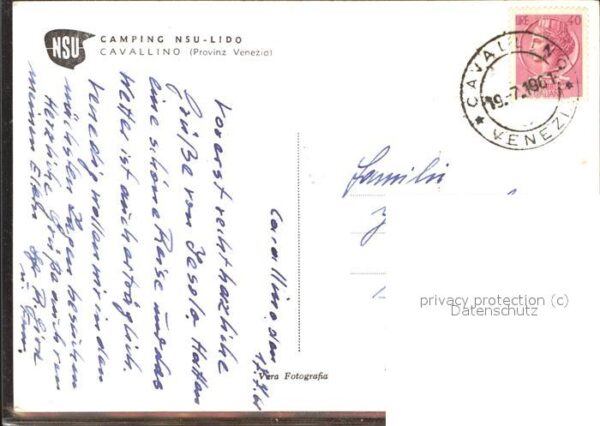 NSU
CAMPING NSU-LIDO
CAVALLINO (Provinz Venezia)
LIRE 40
CAVALLINO
19.-7.1961
VENEZI
Cavallino, den
17.7.61
Vorerst recht herzliche
Grüße von Jesolo. Hatten
eine schöne Reise und das
Wetter ist auch erträglich.
Venedig wollen wir in den
nächsten Tagen besuchen
Herzliche Grüße auch von
meinen Eltern
Familie
privacy protection (c)
Datenschutz
Vera Fotografia